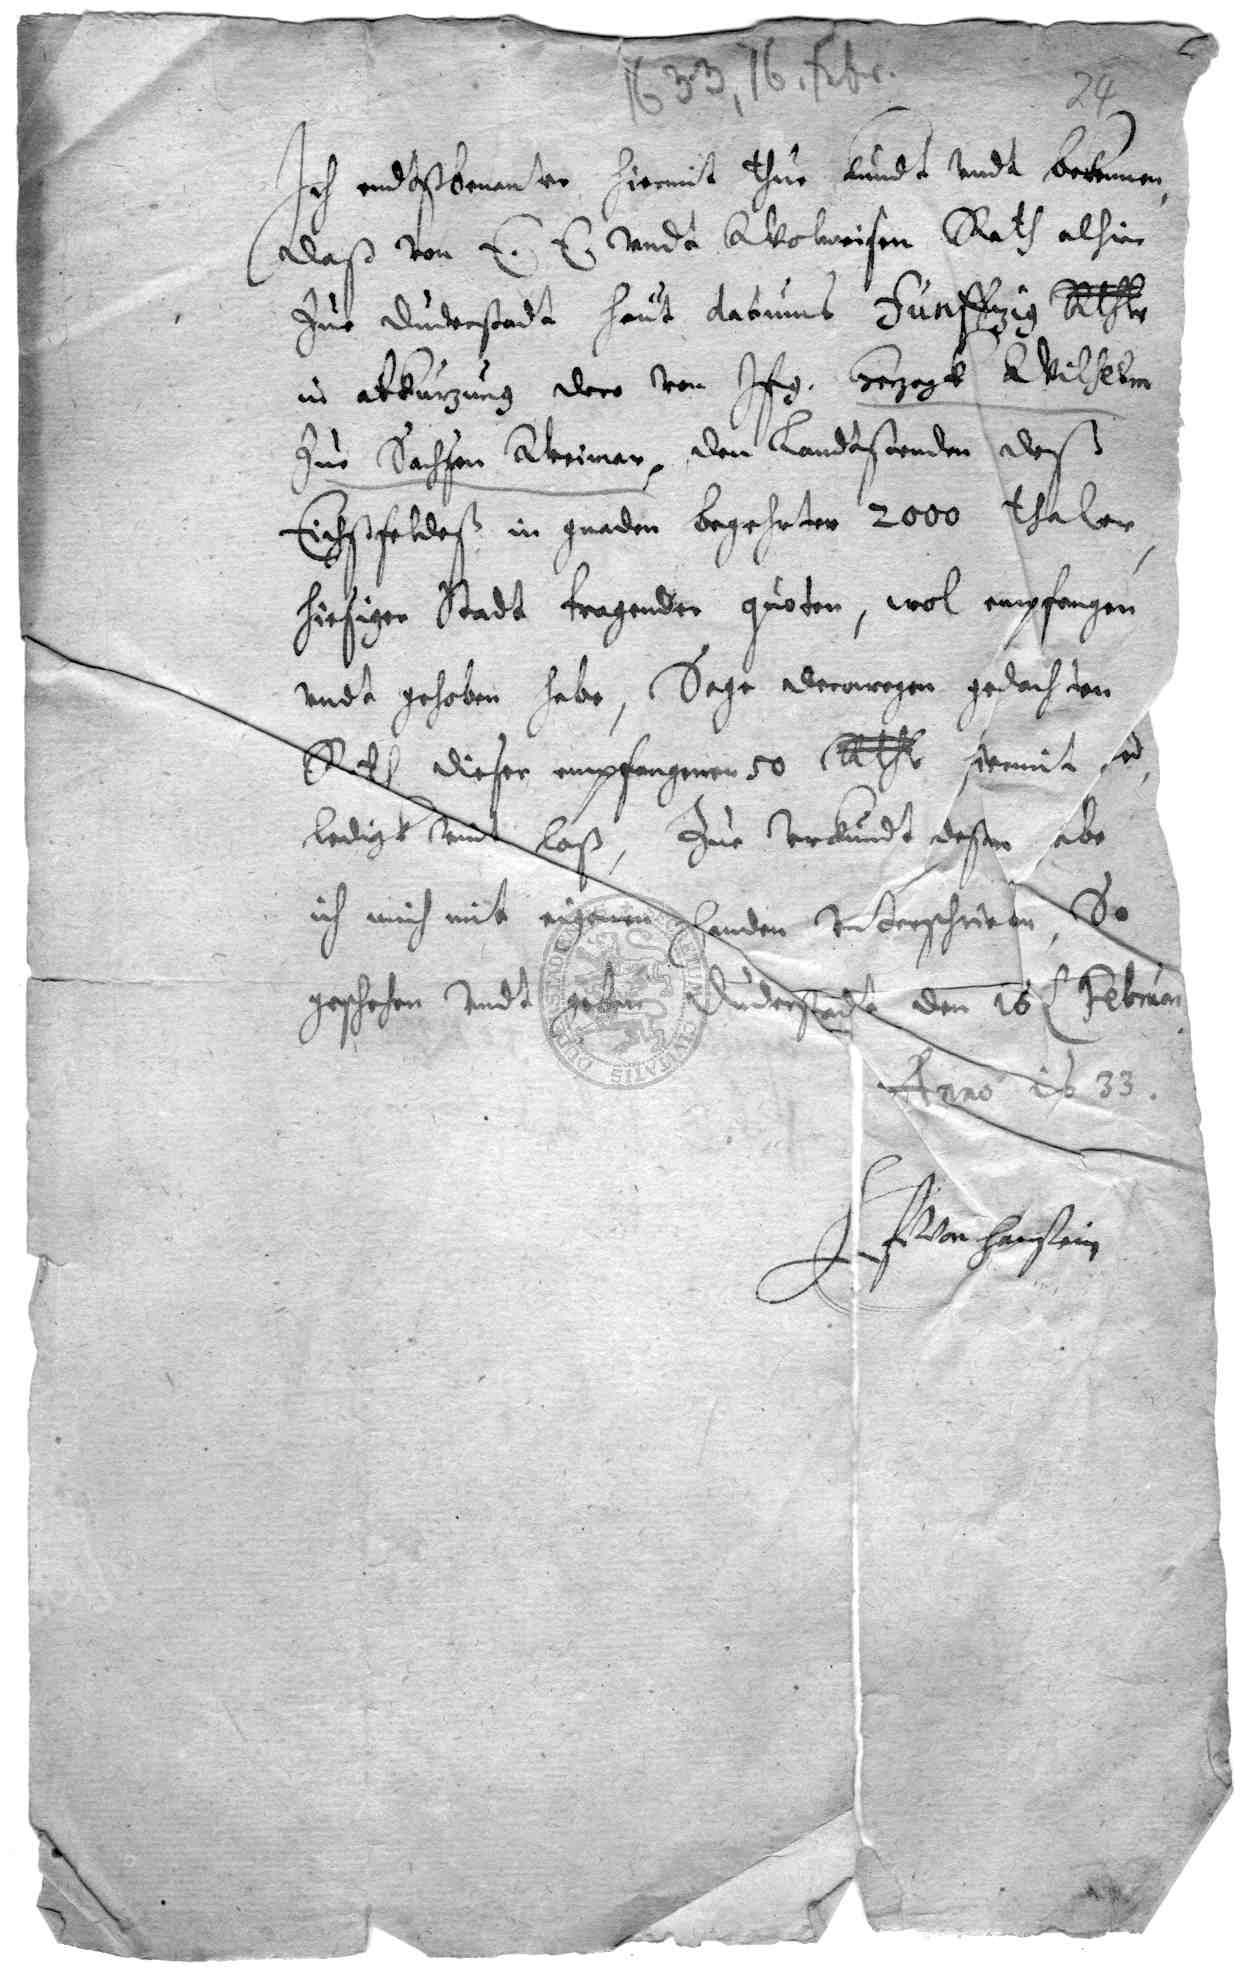 1633, 16. Febr.
24
Ich endtsßbenanter hiermit thue kundt undt bekennen,
daß von E. E. undt Wolweisen Rath alhier
Zue Duderstadt heut datums Fünffzig Rthlr
in abkurzung derer von Jfg. Herzogk Wilhelm
Zue Sachsen Weimar, den Landtstenden deß
Eichßfeldeß in gnaden begehrter 2000 thaler,
hiesiger Stadt tragender quoten, wol empfangen
undt gehoben habe, Sage derowegen gedachten
Rath dieser empfangenen 50 Rthlr hiermit
ledigk undt loß, Zue Urkundt deßen habe
ich mich mit eigenen handen unterschrieben, So
geschehen undt geben Duderstadt den 16 Februar
Anno 1633.
von Hanstein
CIVITATIS